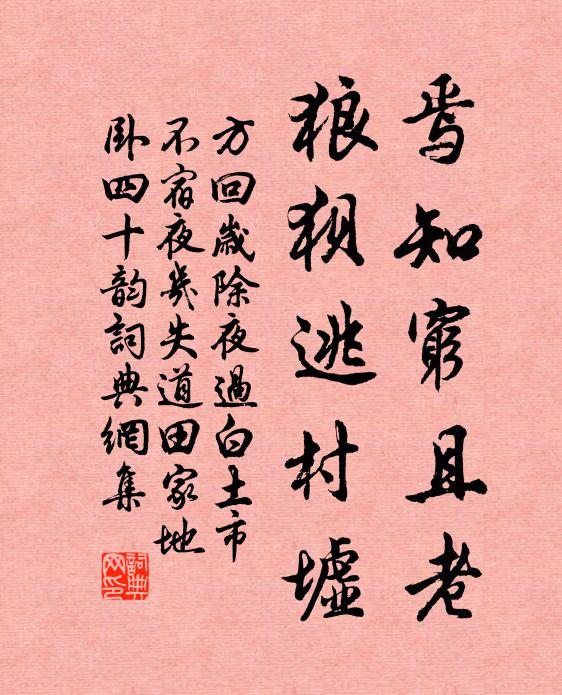 焉知窮且老
狼狽逃村墟
方回歲除夜過白土市
不宿夜幾失道田家地
臥四十韵詞典網集
詞典網印